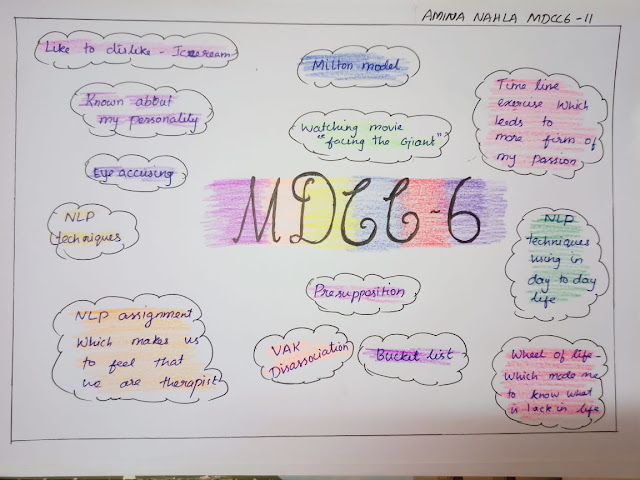 AMINA NAHLA MDCC6-11
Like to dislike - Icecream
Known about
my personality
Eye accusing
NLP
techniques
NLP assignment
Which makes us
to feel that
we are therapist
Milton model
Watching movie
"facing the Giant"
MDCC-6
Presupposition
VAK
Disassociation
Bucket list
Time line
exercise which
leads to
more firm of
my passion
NLP
techniques
using in
day to day
life
Wheel of life -
Which made me
to know what
is lack in life